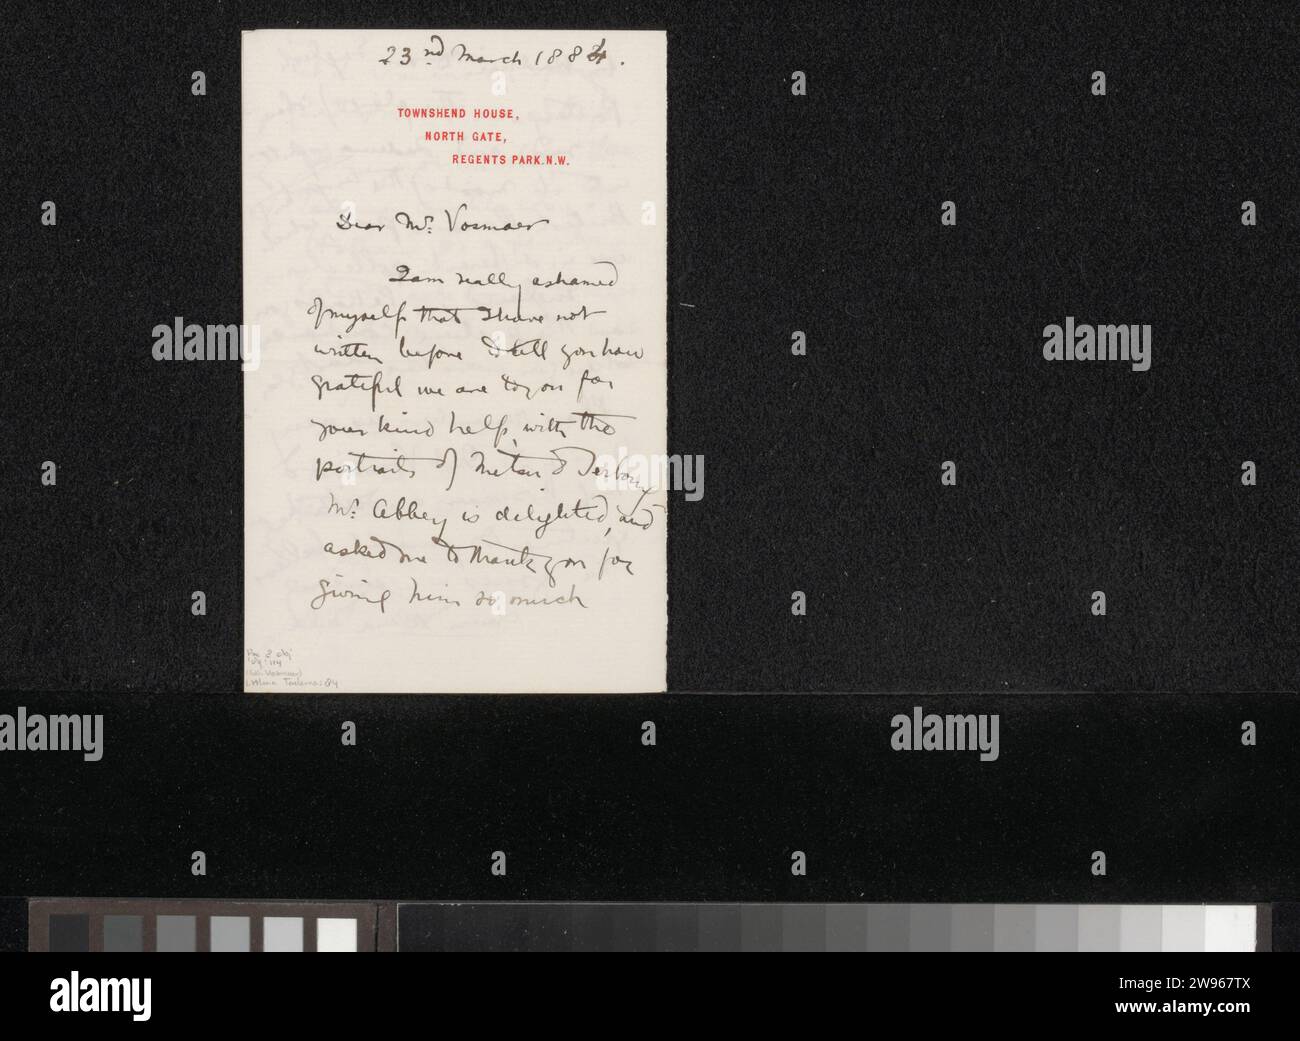 23rd March 1884.
TOWNSHEND HOUSE,
NORTH GATE,
REGENTS PARK. N.W.
Dear Mr. Vosmaer
I am really ashamed
of myself that I have not
written before to tell you how
grateful we are to you for
your kind help, with the
portraits of Metsu & Terburg
Mr. Abbey is delighted, and
asked me to thank you for
giving him so much
alamy
Image ID: 2W967TX
www.alamy.com